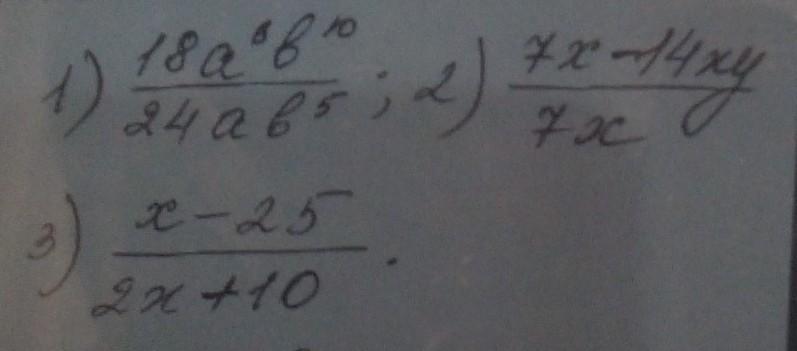 1) 18a⁸b¹⁰/24ab⁵; 2) 7x-14xy/7x
3) x-25/2x+10.